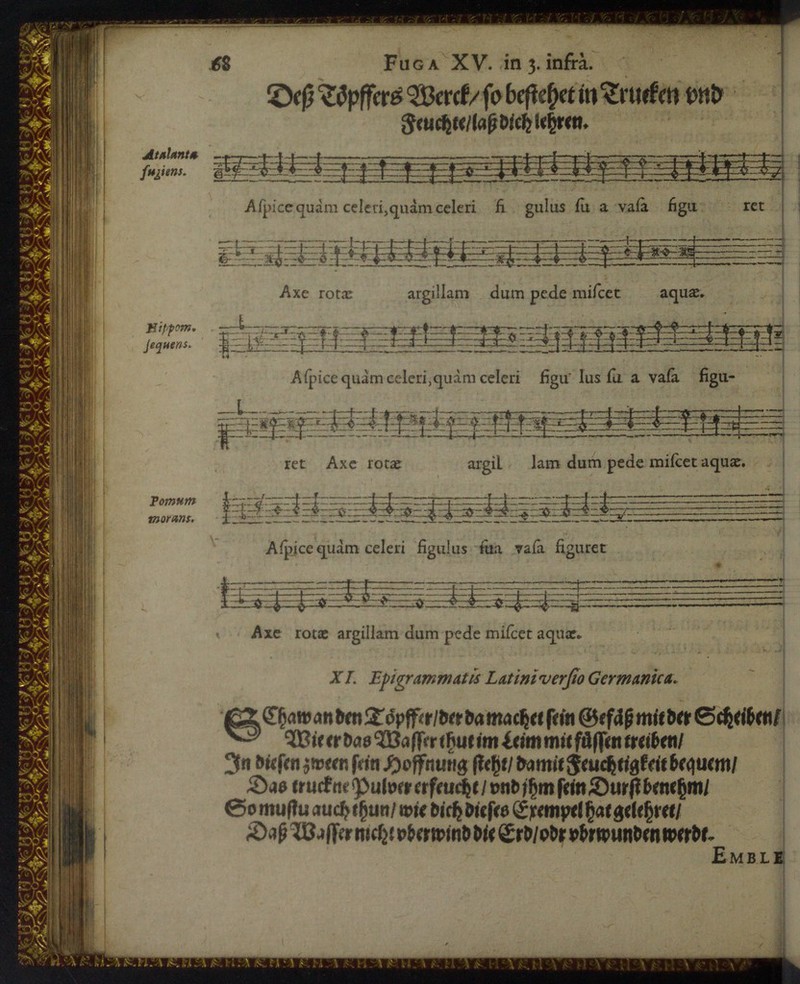 68 FUGA XV. in 3. infrà.
Deß Töpffers Werck/ so bestehet in Trucken vnd
Feuchte/ laß dich lehren.
Atalanta
fugiens.
Aſpice quàm celeri, quàm celeri fi gulus ſu a vaſa figu ret
Axe rotæ argillam dum pede miſcet aquæ.
Hippom.
ſequens.
Aſpice quàm celeri, quàm celeri figu lus ſu a vaſa figu-
ret Axe rotæ argil lam dum pede miſcet aquæ.
Pomum
morans.
Aſpice quàm celeri figulus ſua vaſa figuret
Axe rotæ argillam dum pede miſcet aquæ.
XI. Epigrammatis Latini verſio Germanica.
SChaw an den Töpffer/ der da machet sein Gefäß mit der Scheiben/
Wie er das Wasser thut im Leim mit füssen treiben/
In diesen zween sein Hoffnung steht/ damit Feuchtigkeit bequem/
Das truckne Pulver erfeucht/ vnd ihm sein Durst benehm/
So mustu auch thun/ wie dich dieses Exempel hat gelehret/
Daß Wasser nicht vberwind die Erd/ odr vbrwunden werdt.
EMBLE